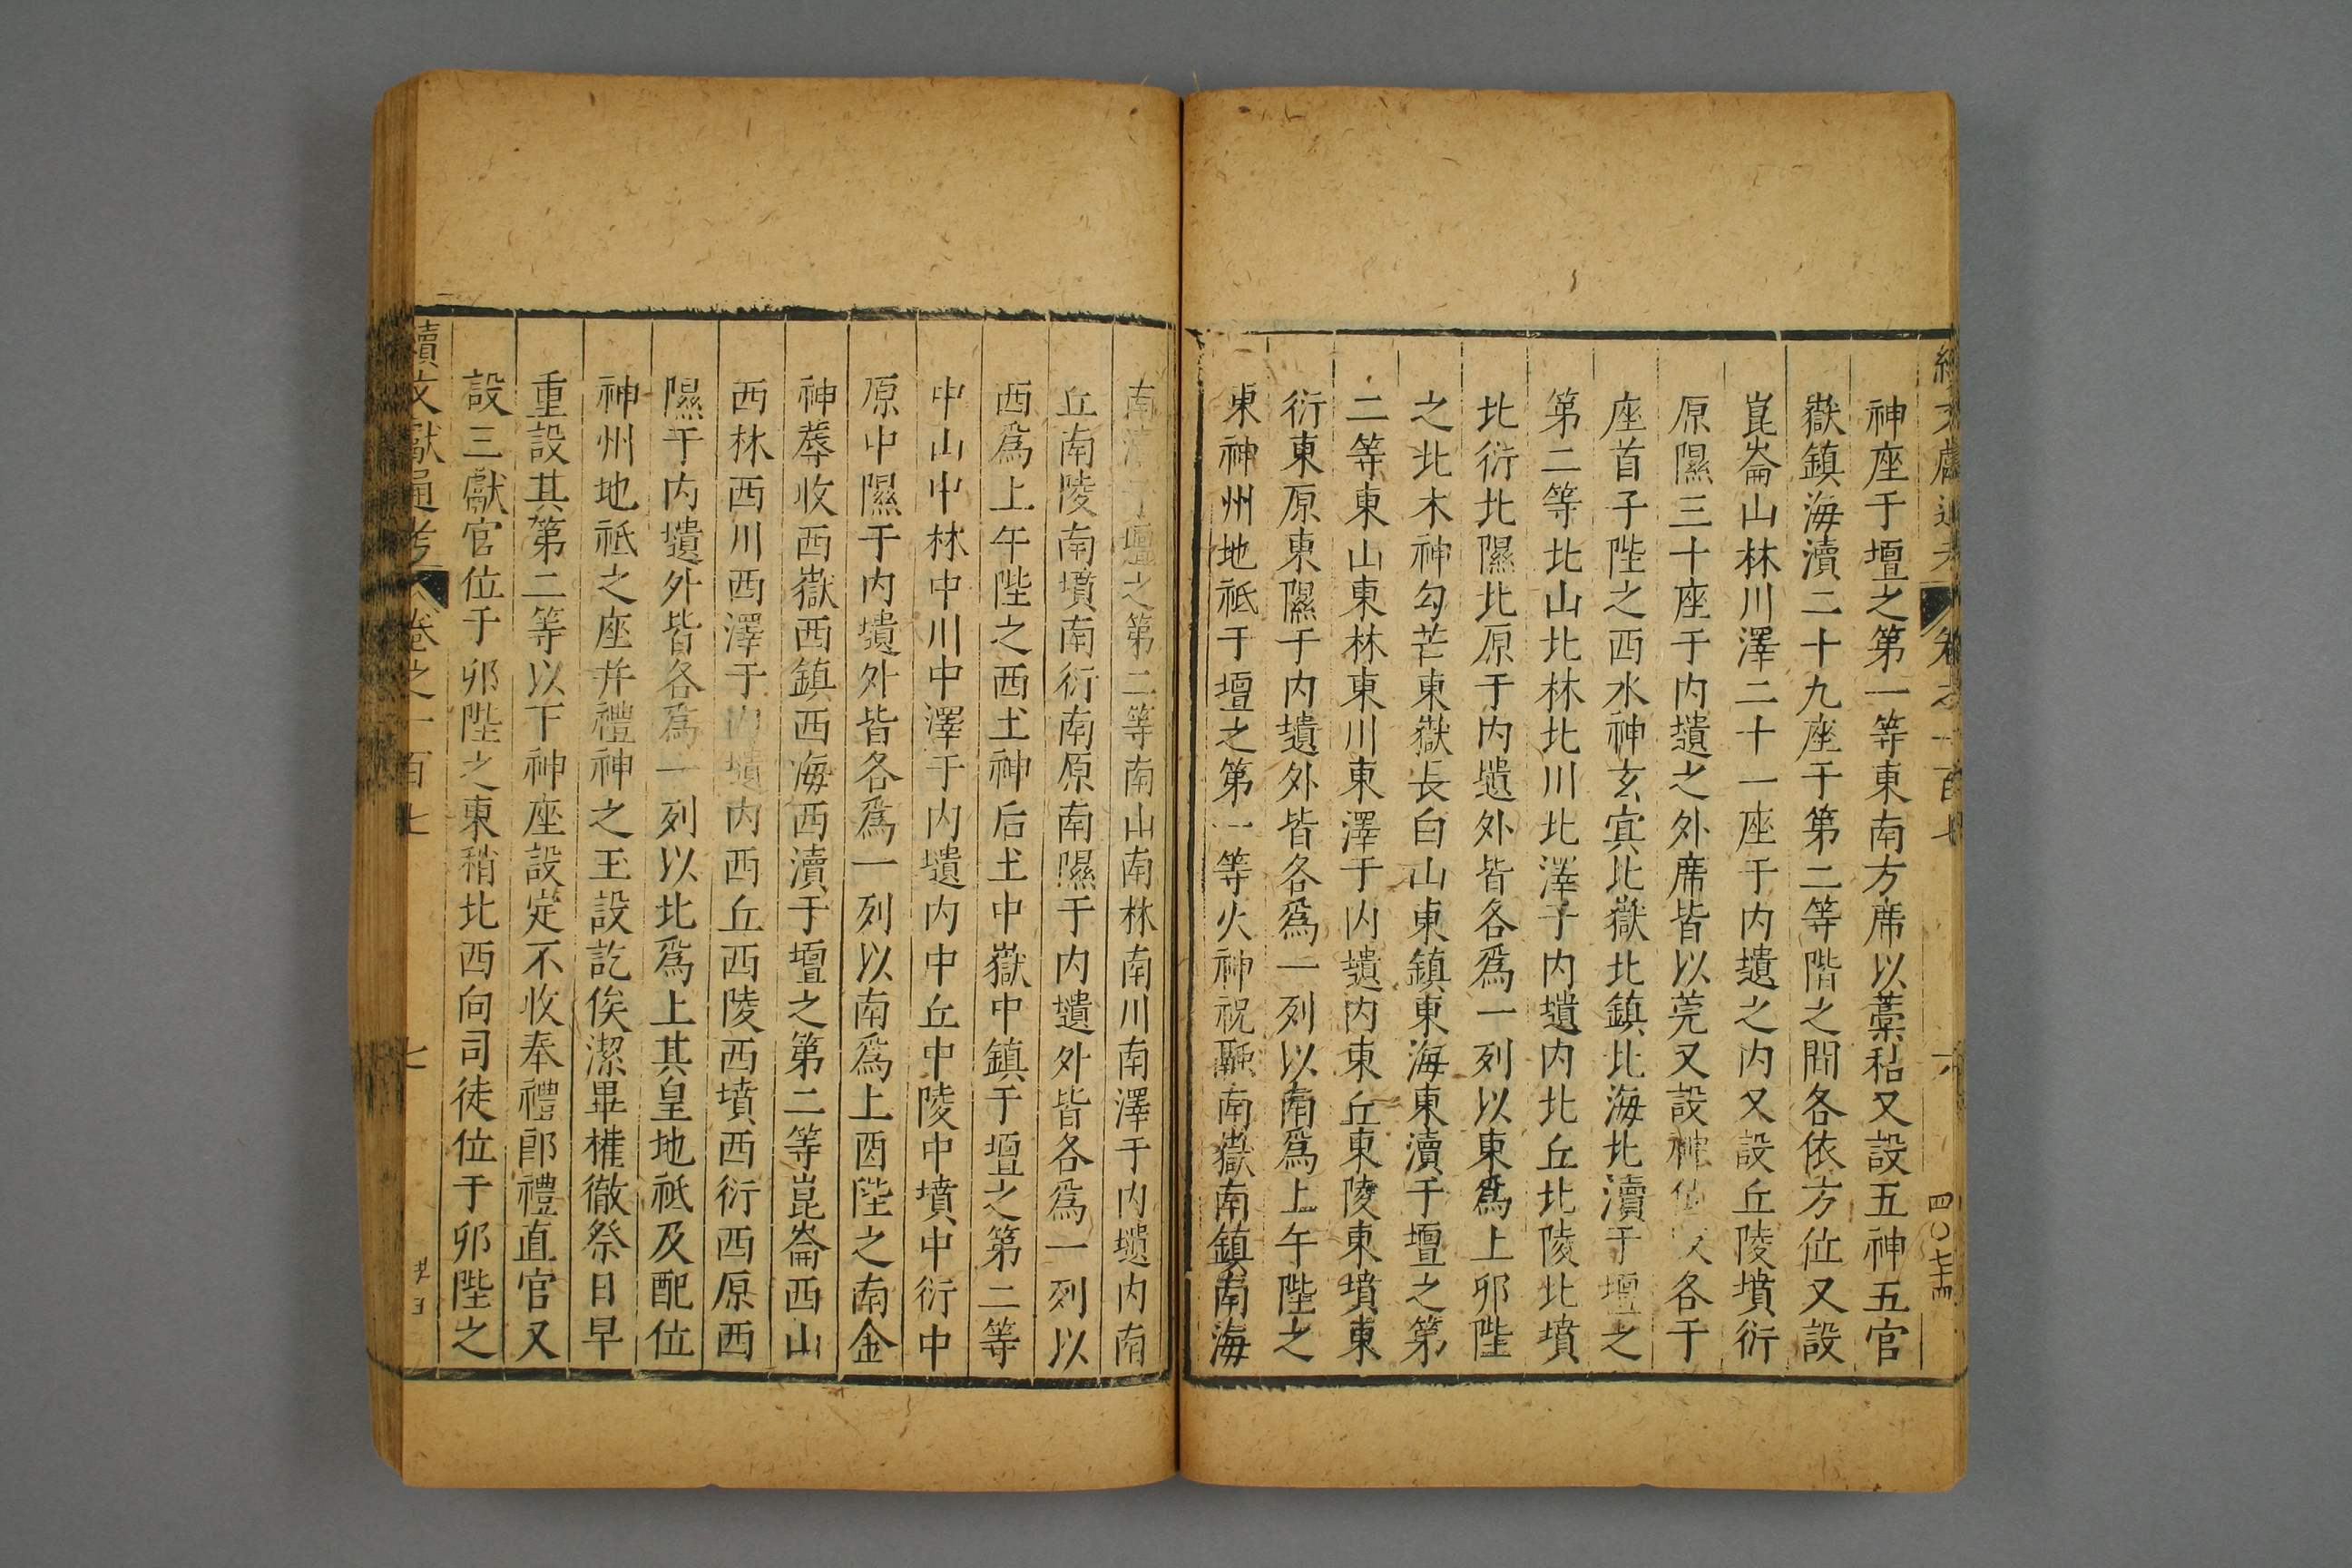 神座于壇之第一等東南方席以藁秸又設五神五官
嶽鎮海瀆二十九座于第二等階之間各依方位又設
崑崙山林川澤二十一座于内壝之内又設丘陵墳衍
原隰三十座于内壝之外席皆以莞又設神位各于
座首子陛之西水神玄冥北嶽北鎮北海北瀆于壇之
第二等北山北林北川北澤于内壝内北丘北陵北墳
北衍北隰北原于内壝外皆各爲一列以東爲上卯陛
之北木神勾芒東嶽長白山東鎮東海東瀆于壇之第
二等東山東林東川東澤于内壝内東丘東陵東墳東
衍東原東隰于内壝外皆各爲一列以南爲上午陛之
東神州地祗于壇之第一等火神祝融南嶽南鎮南海
南壇之第二等南山南林南川南澤于内壝内南
丘南陵南墳南衍南原南隰于内壝外皆各爲一列以
西爲上午陛之西土神后土中嶽中鎮于壇之第二等
中山中林中川中澤于内壝内中丘中陵中墳中衍中
原中隰于内壝外皆各爲一列以南爲上酉陛之南金
神蓐收西嶽西鎮西海西瀆于壇之第二等崑崙西山
西林西川西澤于内壝内西丘西陵西墳西衍西原西
隰于内壝外皆各爲一列以北爲上其皇地祗及配位
神州地祗之座并禮神之玉設訖俟潔畢權徹祭日早
重設其第二等以下神座設定不收奉禮郎禮直官又
設三獻官位于卯陛之東稍北西向司徒位于卯陛之
續文獻通考 卷之一百七 七